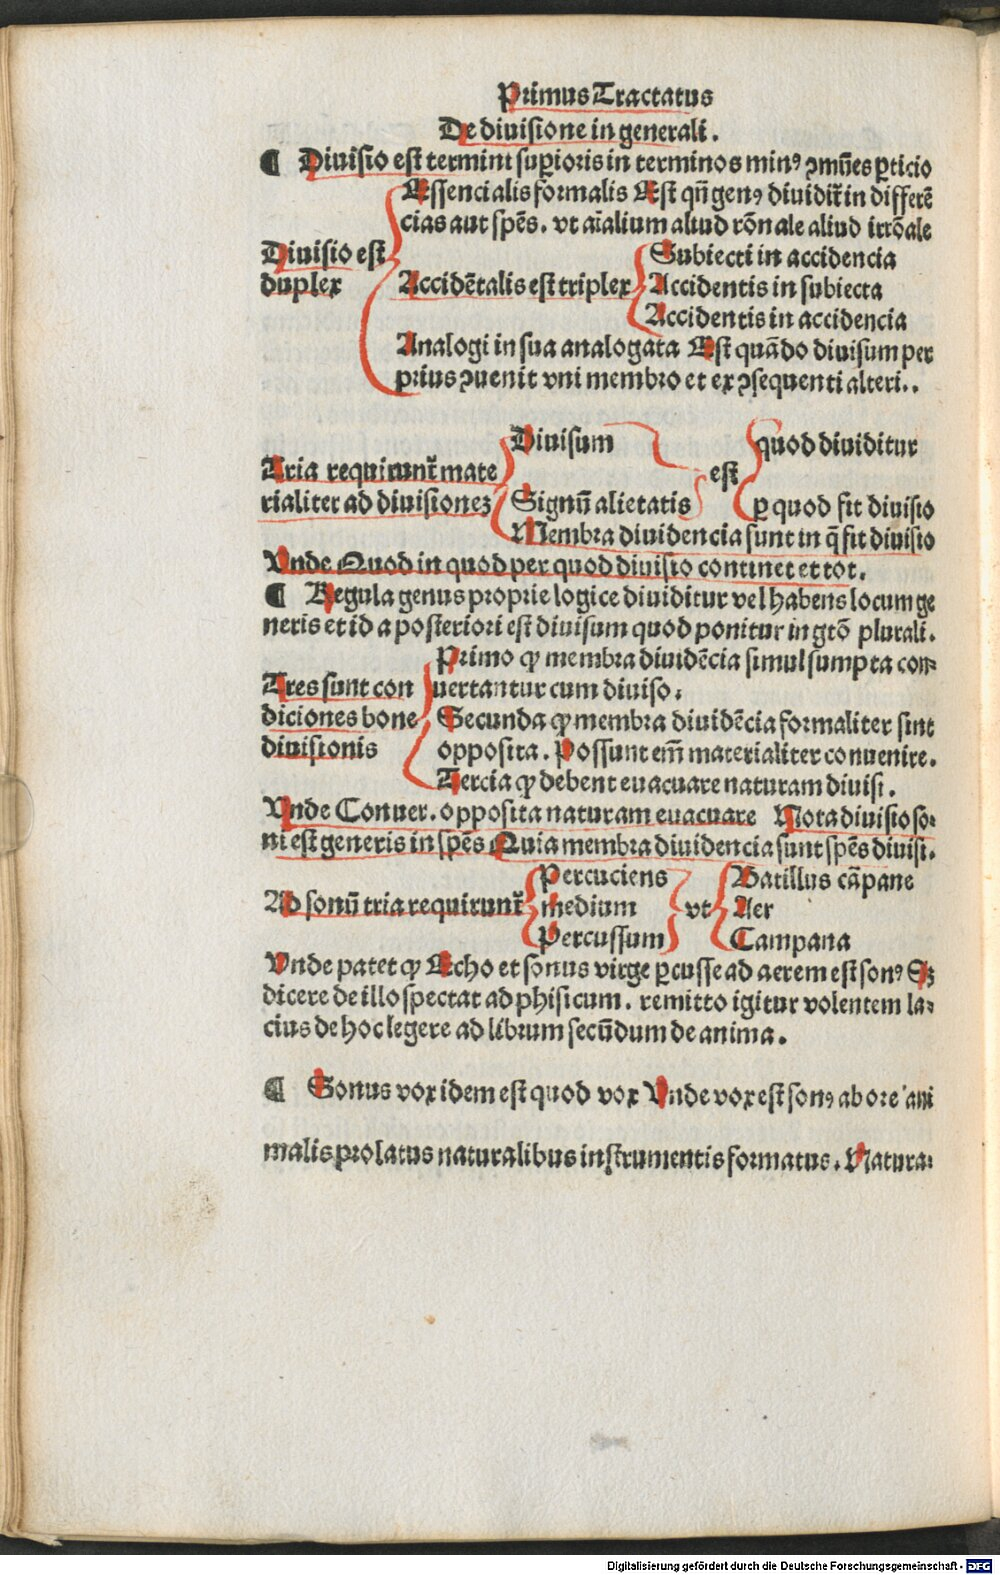 Primus Tractatus
De diuisione in generali.
¶ Diuisio est termini superioris in terminos minꝰ ꝯmūes ꝑticio
Essencialis formalis Est qñ genꝰ diuidit̄ in differē
cias aut spēs. vt aīalium aliud rōnale aliud irrōale
Diuisio est
duplex
Accidētalis est triplex
Subiecti in accidencia
Accidentis in subiecta
Accidentis in accidencia
Analogi in sua analogata Est quādo diuisum per
prius ꝯuenit vni membro et ex ꝯsequenti alteri..
Tria requirunt̄ mate
rialiter ad diuisionez
Diuisum
Signū alietatis
est
quod diuiditur
ꝑ quod fit diuisio
Membra diuidencia sunt in q̄ fit diuisio
Vnde Quod in quod per quod diuisio continet et tot.
¶ Regula genus proprie logice diuiditur vel habens locum ge
neris et id a posteriori est diuisum quod ponitur in gtō plurali.
Tres sunt con
diciones bone
diuisionis
Primo ꝙ membra diuidēcia simul sumpta con-
uertantur cum diuiso.
Secunda ꝙ membra diuidēcia formaliter sint
opposita. Possunt em̄ materialiter conuenire.
Tercia ꝙ debent euacuare naturam diuisi.
Vnde Conuer. opposita naturam euacuare Nota diuisio so-
ni est generis in spēs Quia membra diuidencia sunt spēs diuisi.
Ad sonū tria requirunt̄
Percuciens
medium
Percussum
vt
Batillus cāpane
Aer
Campana
Vnde patet ꝙ Echo et sonus virge ꝑcusse ad aerem est sonꝰ Sꝫ
dicere de illo spectat ad phisicum. remitto igitur volentem la-
cius de hoc legere ad librum secūdum de anima.
¶ Sonus vox idem est quod vox Vnde vox est sonꝰ ab ore ani
malis prolatus naturalibus instrumentis formatus. Natura-
Digitalisierung gefördert durch die Deutsche Forschungsgemeinschaft - DFG